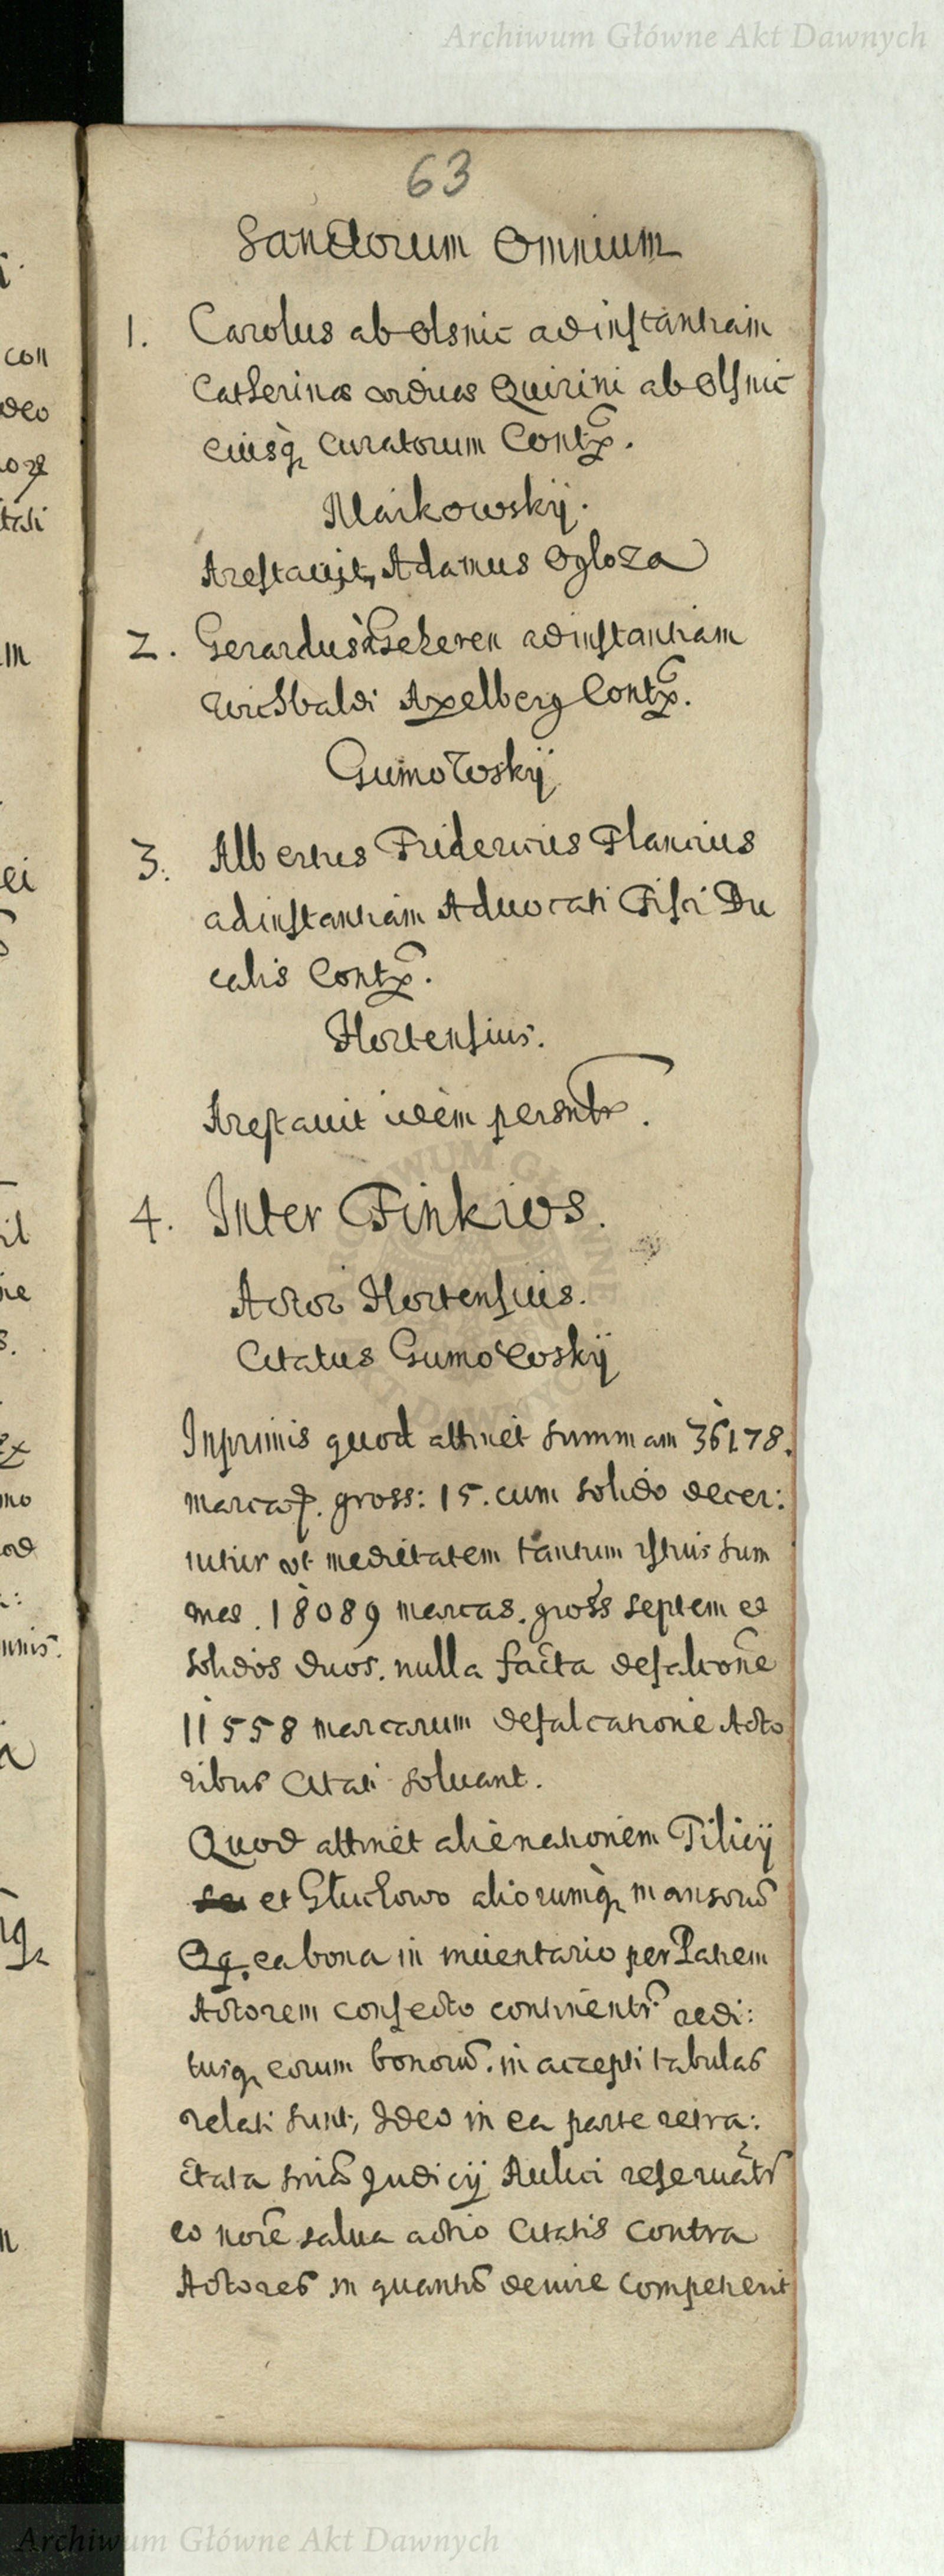 Archiwum Główne Akt Dawnych
63
Sanctorum Omnium
1. Carolus ab Olsnic ad instantiam
Catherinae viduae Quirini ab Olsnic
eiusq, curatorum Contx.
Markowskÿ.
Arestauit, Adamus Ogloza
2. Gerardus à ad instantiam
Wichbaldi Axelberg Contx.
Gumowskÿ
3. Albertus Fridericus Flanius
ad instantiam Aduocati Fisci Du
calis Contx.
Hortensius.
Arestauit idem
4. Inter Finkios.
Actor Hortensius.
Citatus Gumowskÿ
Inprimis quod attinet summam 36178.
marcaꝝ. gross: 15. cum solido decer:
nitur vt medietatem tantum istius sum
mae. 18089 marcas. gross septem et
solidos duos. nulla facta defalcōne
11558 marcarum defalcatione Acto
ribus Citati soluant.
Quod attinet alienationem Tilicÿ
et Gluchowo aliorumq, mansorū
Qq. ea bona in inuentario per Patrem
Actorem confecto continentr redi:
tusq, eorum bonorū. in accepti tabulas
relati sunt, Ideo in ea parte retra:
ctata Judicÿ Aulici reseruatr
eo nōie salua actio Citatis contra
Actores in quantū de iure competierit
Archiwum Główne Akt Dawnych